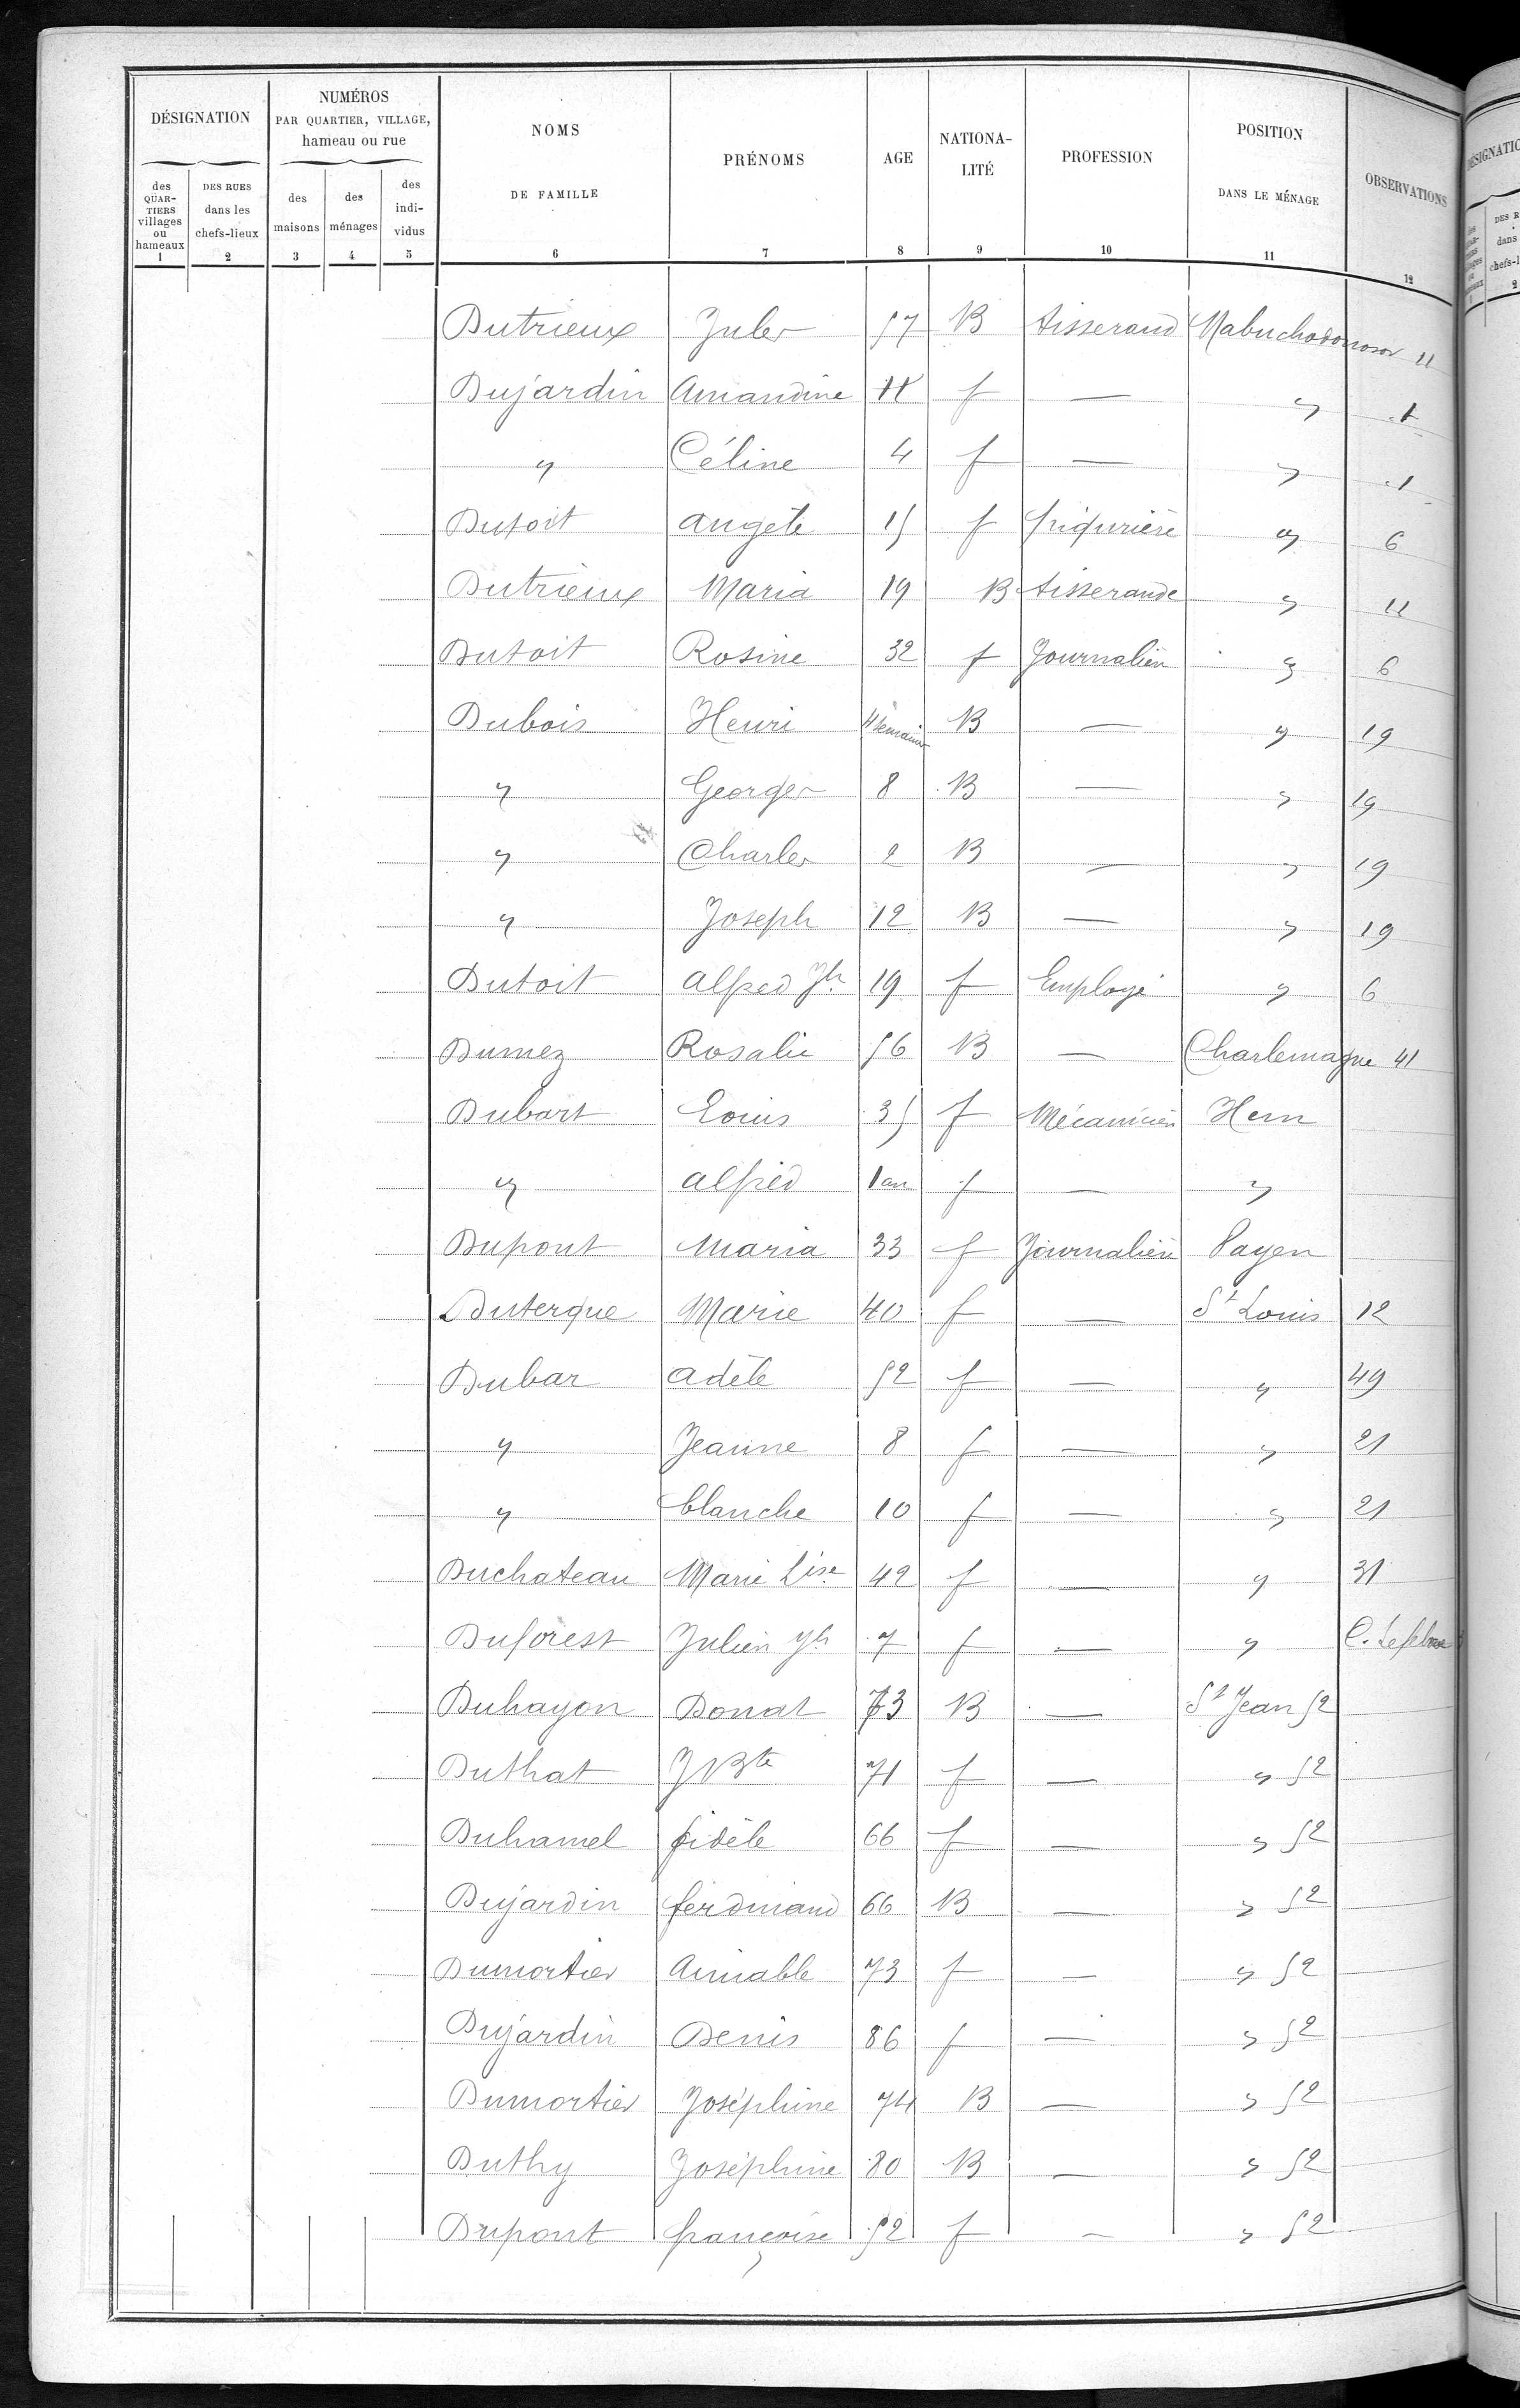 DÉSIGNATION
NUMÉROS
PAR QUARTIER, VILLAGE,
hameau ou rue
NOMS
DE FAMILLE
PRÉNOMS
AGE
NATIONA-
LITÉ
PROFESSION
POSITION
DANS LE MÉNAGE
OBSERVATIONS
des
QUAR-
TIERS
villages
ou
hameaux
DES RUES
dans les
chefs-lieux
des
maisons
des
ménages
des
indi-
vidus
1 2 3 4 5 6 7 8 9 10 11 12
Dutrieux Jules 57 B tisserand Nabuchodonosor 11
Dujardin Amandine 11 f — " 1
" Céline 4 f — " 1
Dutoit Angèle 15 f piqurière " 6
Dutrieux Maria 19 B tisserande " 11
Dutoit Rosine 32 f Journalièr " 6
Dubois Henri 4 semaines B — " 19
" Georges 8 B — " 19
" Charles 2 B — " 19
" Joseph 12 B — " 19
Dutoit Alfred Jh 19 f Employé " 6
Dumez Rosalie 56 B — Charlemagne 41
Dubart Louis 35 f Mécanicien Hem
" Alfred 1 an f — "
Dupont Maria 33 f Journalièr Payen
Duterque Marie 40 f — St Louis 12
Dubar Adèle 52 f — " 49
" Jeanne 8 f — " 21
" blanche 10 f — " 21
Duchateau Marie Lise 42 f — " 31
Duforest Julien Jh 7 f — " C. Lefebvre
Duhayon Donat 73 B — St Jean 52
Duthat J Bte 71 f — " 52
Duhamel fidèle 66 f — " 52
Dujardin ferdinand 66 B — " 52
Dumortier Aimable 73 f — " 52
Dujardin Denis 86 f — " 52
Dumortier Joséphine 74 B — " 52
Duthy Joséphine 80 B — " 52
Dupont françoise 52 f — " 52